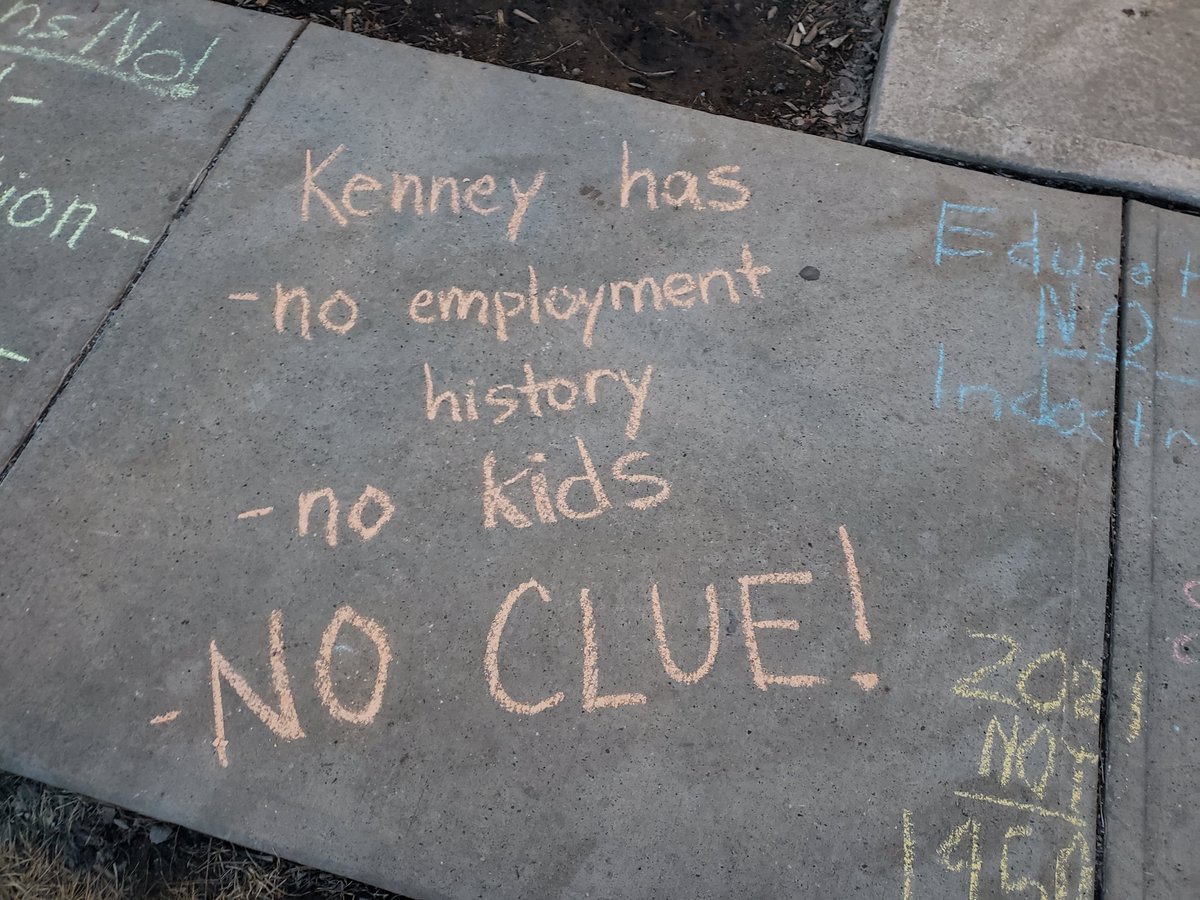 ns/No!
ion -
Kenney has
- no employment
history
- no kids
- NO CLUE!
Educat
NO -
Indoctr
2021
NOT
1950